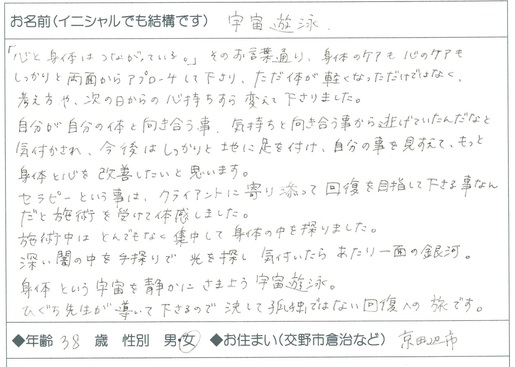 お名前(イニシャルでも結構です) 宇宙遊泳.
「心と身体はつながっている。」そのお言葉通り、身体のケアも心のケアも
しっかりと両面からアプローチして下さり、ただ体が軽くなっただけではなく、
考え方や、次の日からの心持ちすら変えて下さりました。
自分が自分の体と向き合う事、気持ちと向き合う事から逃げていたんだなと
気付かされ、今後はしっかりと地に足を付け、自分の事を見すえて、もっと
身体と心を改善したいと思います。
セラピーという事は、クライアントに寄り添って回復を目指して下さる事なん
だと施術を受けて体感しました。
施術中はとんでもなく集中して身体の中を探りました。
深い闇の中を手探りで光を探し気付いたらあたり一面の銀河。
身体という宇宙を静かにさまよう宇宙遊泳。
ひぐち先生が導いて下さるので決して孤独ではない回復への旅です。
◆年齢 38 歳 性別 男・女 ◆お住まい(交野市倉治など) 京田辺市